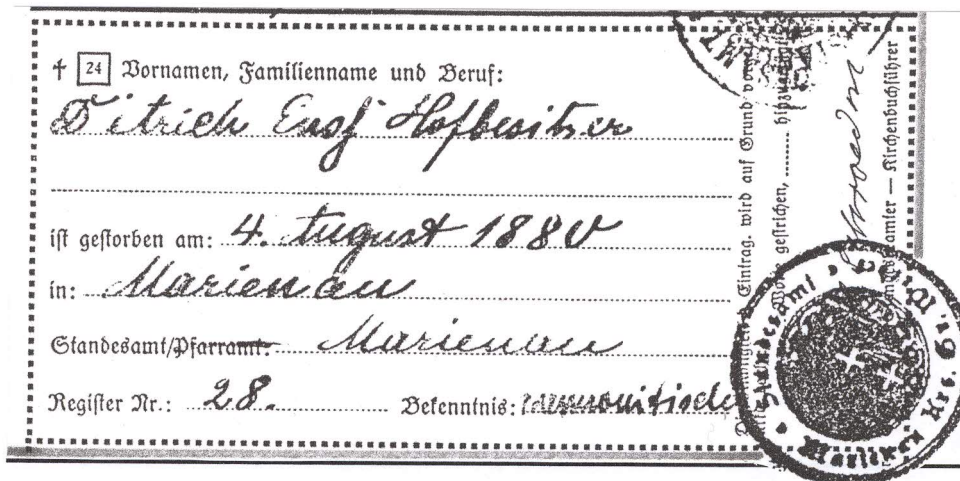 † 24 Vornamen, Familienname und Beruf:
Dietrich Ensz Hofbesitzer
ist gestorben am: 4. August 1880
in: Marienau
Standesamt/Pfarramt: Marienau
Register Nr.: 28. Bekenntnis: mennonitisch
Eintrag. wird auf Grund
gestrichen, hinzu
Kirchenbuchführer
Standesamt